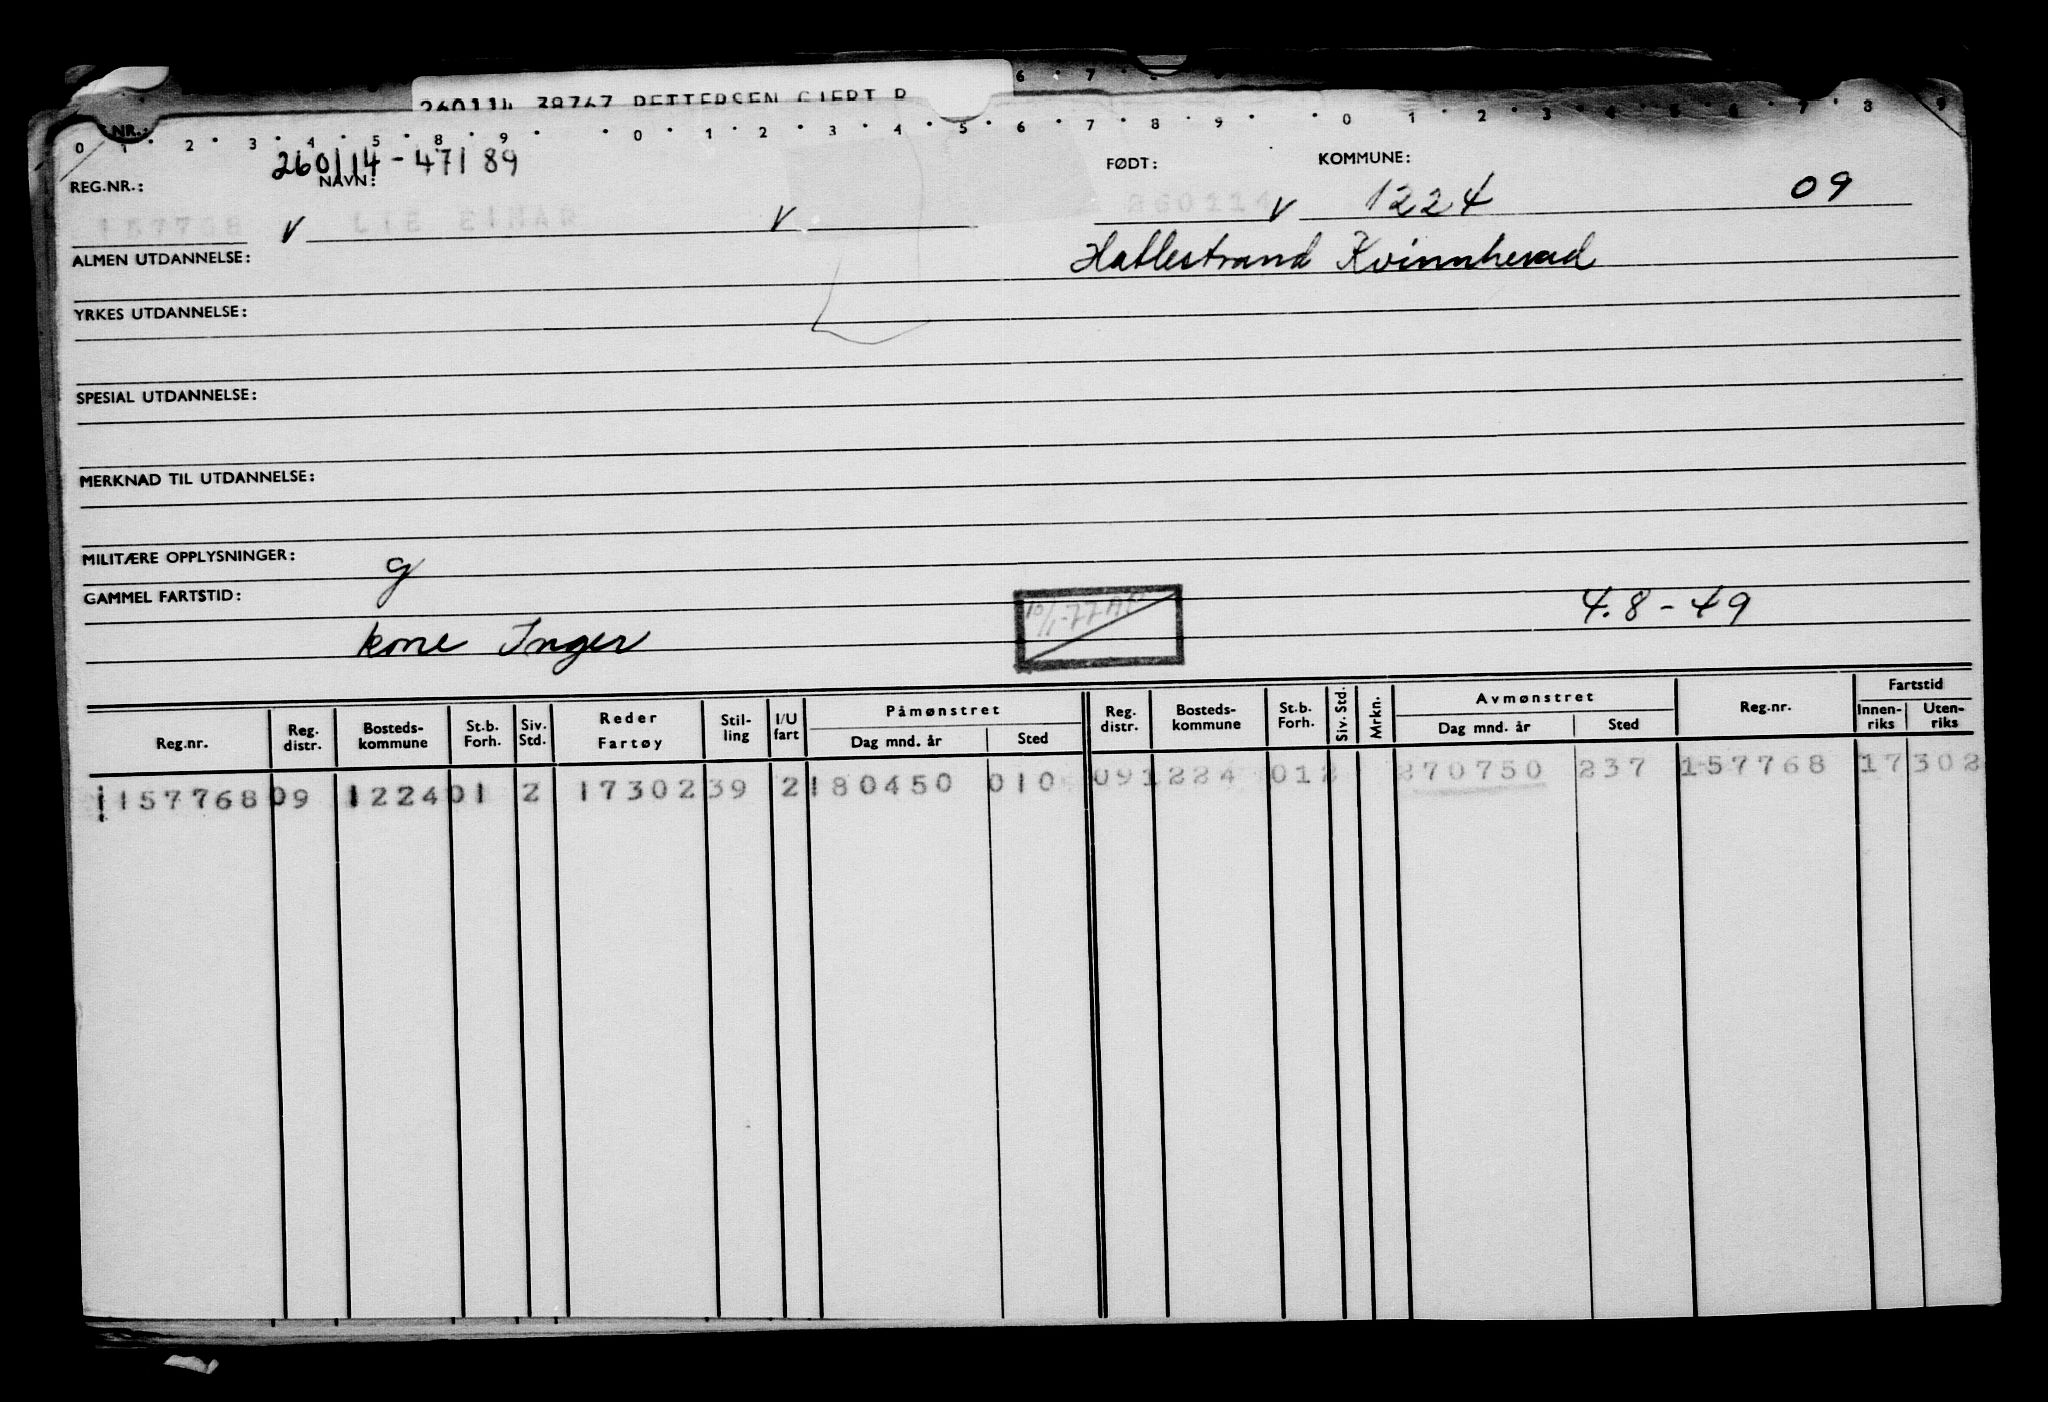 6 7
260114 38767 PETTERSEN GJERT R
NR.:
0 1 2 3 4 5 8 9 0 1 2 3 4 5 6 7 8 9 0 1 2 3 4 5 6 7 8 9
260114-47189
REG.NR.: NAVN: FØDT: KOMMUNE:
157768 V LIE EINAR V 260114 V 1224 09
ALMEN UTDANNELSE: Hatlestrand Kvinnherad
YRKES UTDANNELSE:
SPESIAL UTDANNELSE:
MERKNAD TIL UTDANNELSE:
MILITÆRE OPPLYSNINGER: g
GAMMEL FARTSTID: 4.8-49
kone Inger
Reg.nr. Reg. distr. Bosteds-kommune St.b. Forh. Siv. Std. Reder Fartøy Stil-ling I/U fart Påmønstret Dag mnd. år Sted Reg. distr. Bosteds-kommune St.b. Forh. Siv. Std. Mrkn. Avmønstret Dag mnd. år Sted Reg.nr. Fartstid Innen-riks Uten-riks
1157768 09 1224 01 2 17302 39 2 180450 010 09 1224 01 2 270750 237 157768 17302